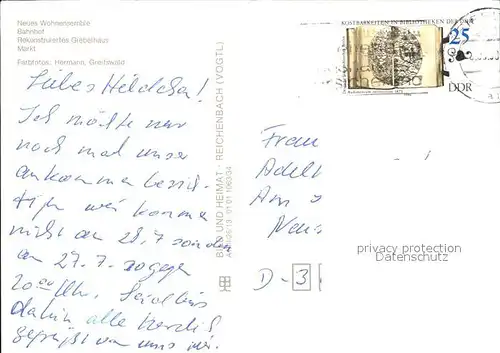 Neues Wohnensemble
Bahnhof
Rekonstruiertes Giebelhaus
Markt
Farbfotos: Hermann, Greifswald
Liebes Hildchen!
Ich möchte nur
noch mal unser
ankommen berich-
tigen wir kommen
nicht am 28.7 sondern
am 27.7. so gegen
20.00 Uhr. Seid bis
dahin alle herzlich
gegrüßt von uns
BILD UND HEIMAT · REICHENBACH (VOGTL)
KOSTBARKEITEN IN BIBLIOTHEKEN DER DDR
25
DDR
Frau
Adel
Am
D-3
privacy protection
Datenschutz